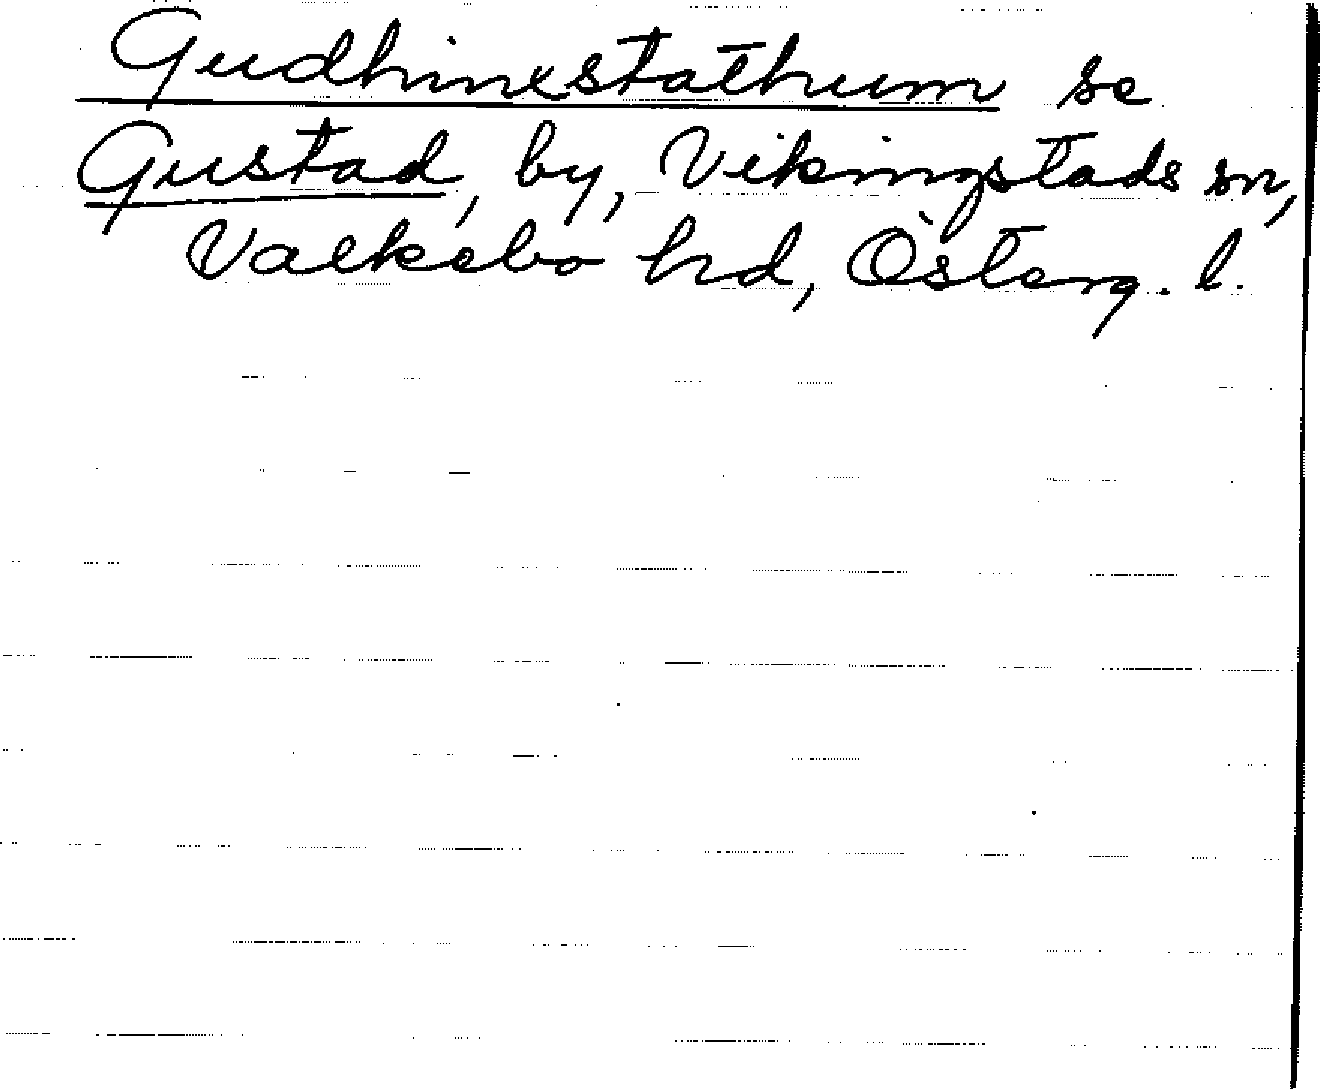 Gudhinxstathum se
Gustad, by, Vikingstads sn,
Valkebo hd, Österg. l.